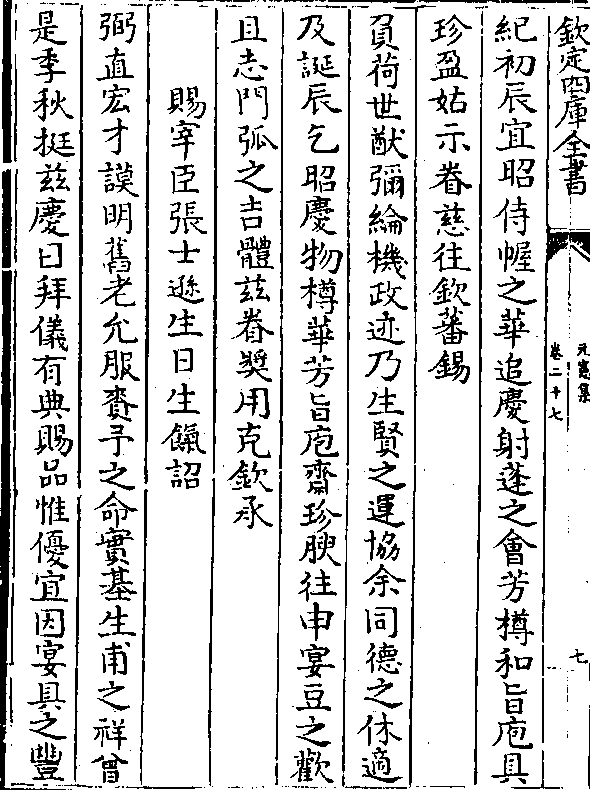 欽定四庫全書
元憲集
卷二十七
七
紀初辰宜昭侍幄之華追慶射蓬之會芳樽和旨庖具
珍盈姑示眷慈往欽蕃錫
負荷世猷彌綸機政迹乃生賢之運協余同德之休適
及誕辰乞昭慶物樽華芳旨庖齋珍腴往申宴豆之歡
且志門弧之吉體茲眷奬用克欽承
賜宰臣張士遜生日生餼詔
弼直宏才謨明舊老允服賚予之命實基生甫之祥曾
是季秋挺茲慶日拜儀有典賜品惟優宜因宴具之豐